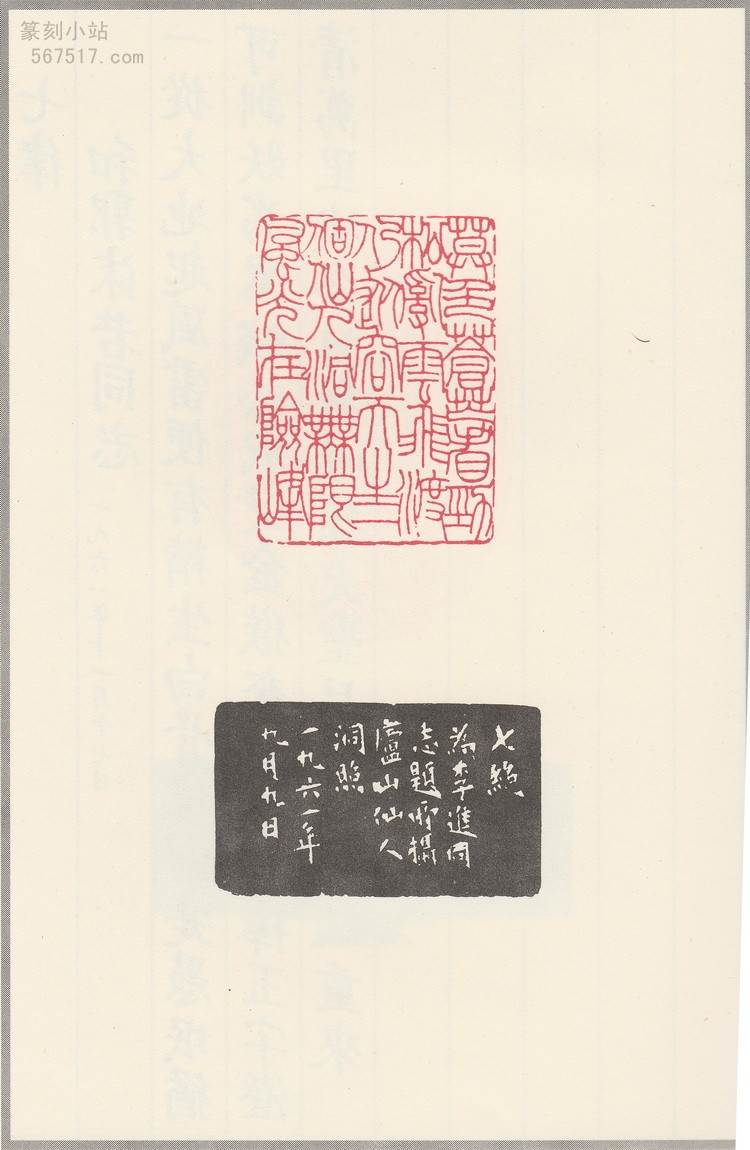 篆刻小站
567517.com
暮色蒼茫看勁
松亂雲飛渡
仍從容天生一
個仙人洞無限
風光在險峰
七絕
為李進同
志題所攝
廬山仙人
洞照
一九六一年
九月九日